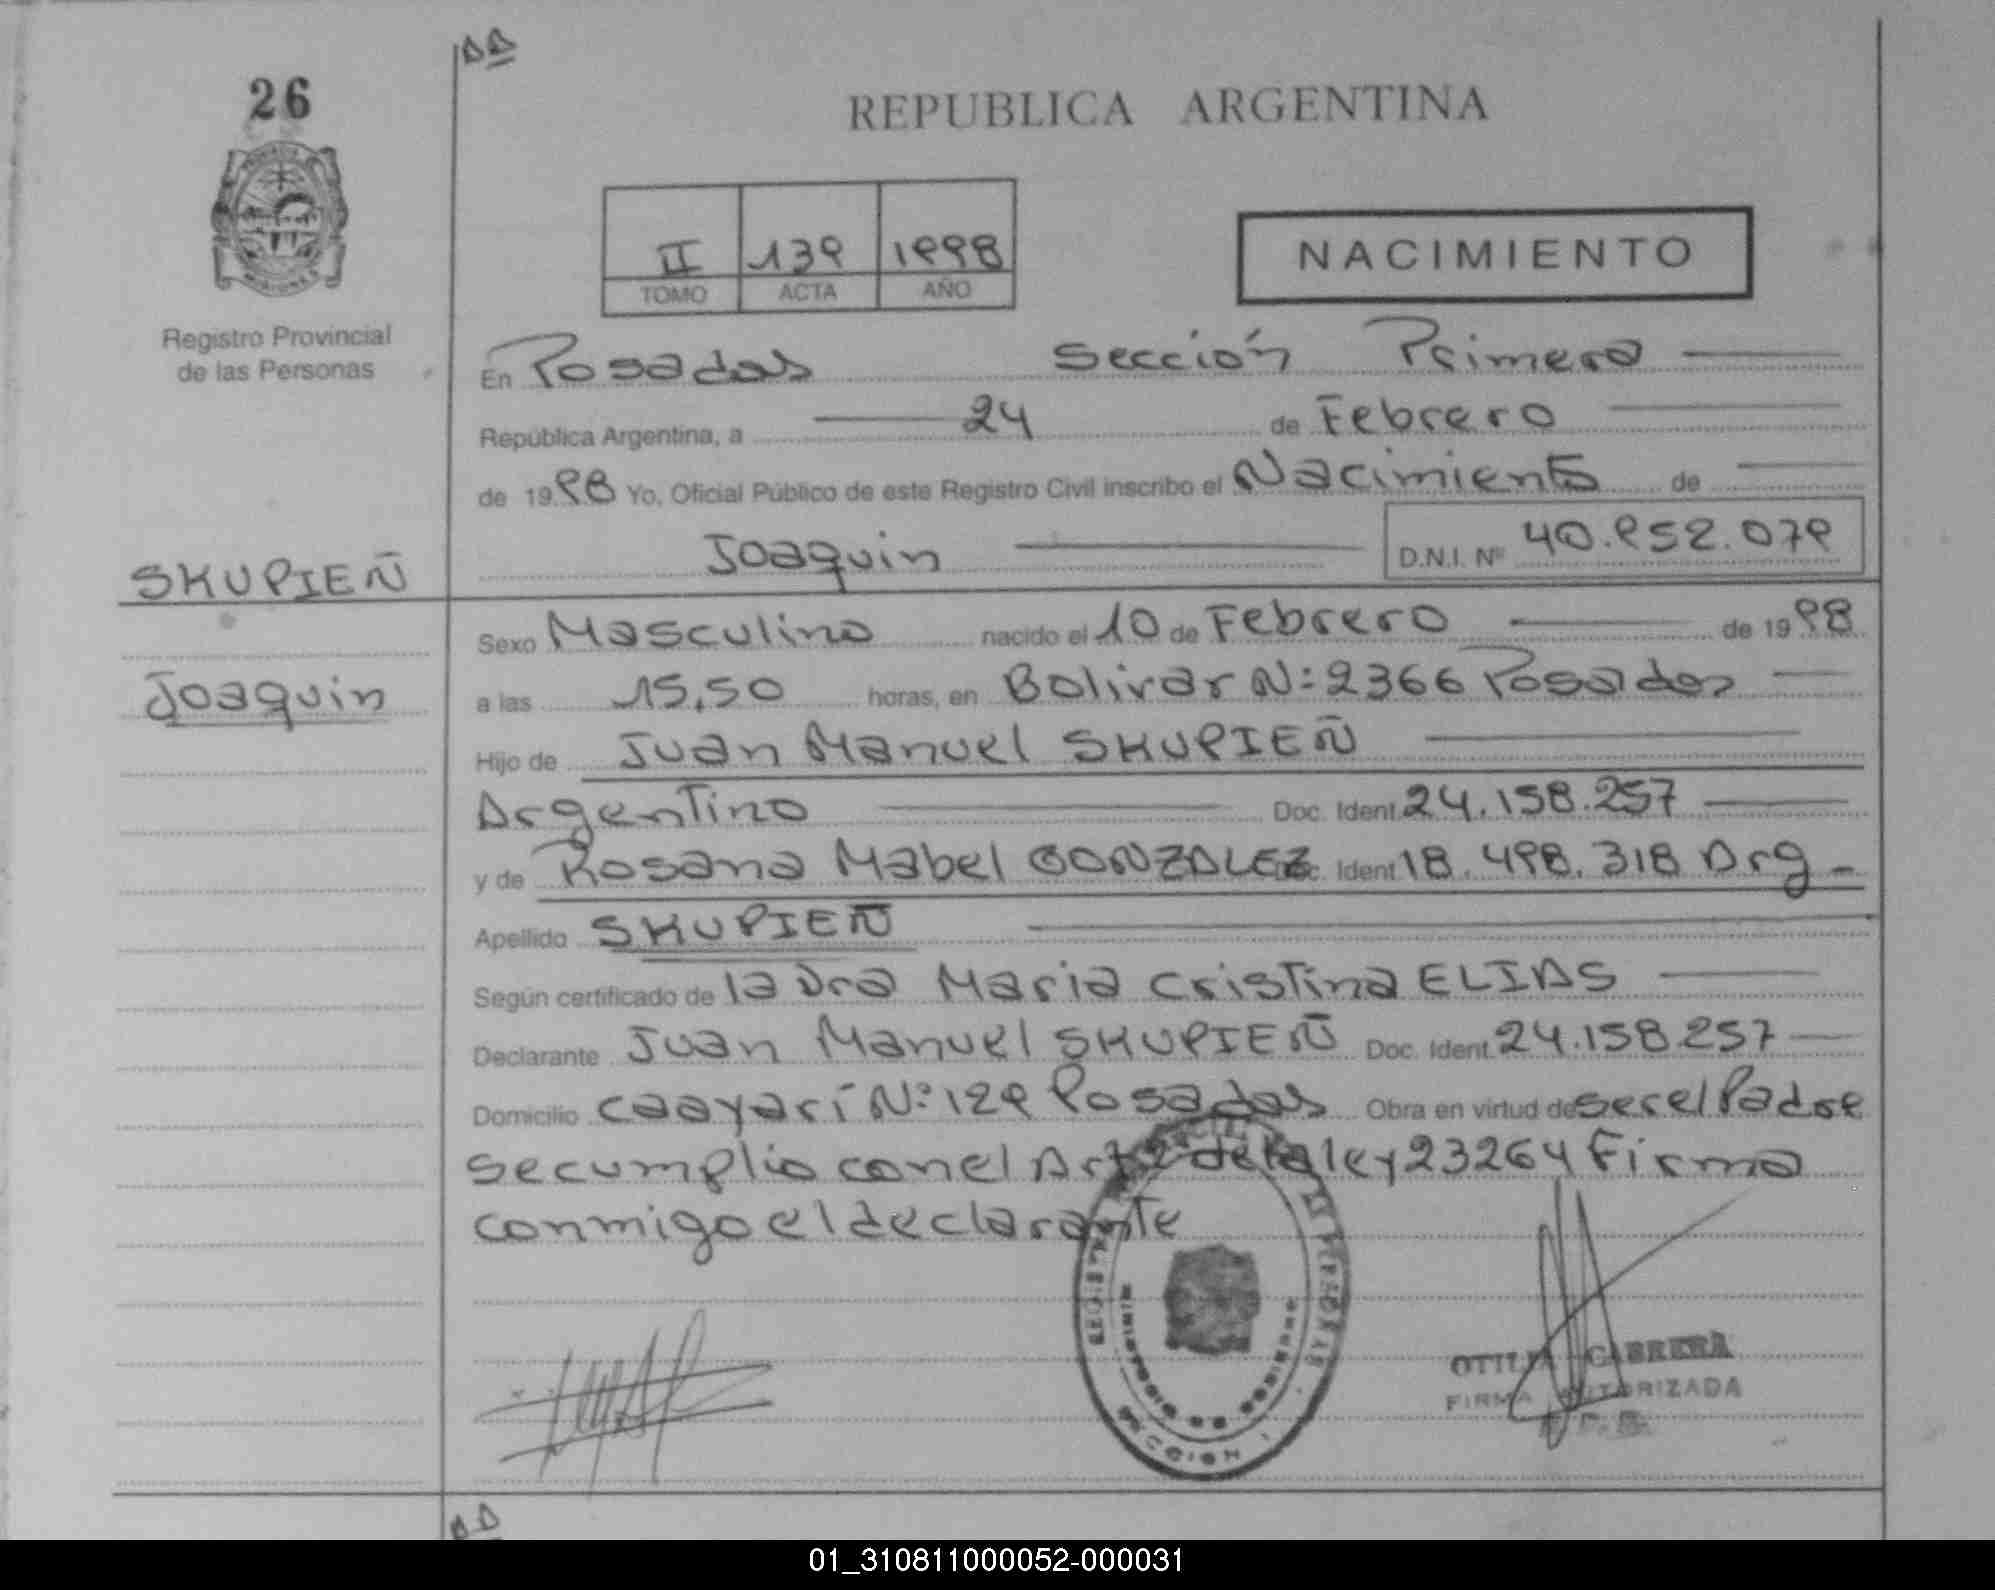 26
REPUBLICA ARGENTINA
II 139 1998
TOMO ACTA AÑO
NACIMIENTO
Registro Provincial
de las Personas
En Posadas Sección Primera
República Argentina, a 24 de Febrero
de 1998 Yo, Oficial Público de este Registro Civil inscribo el Nacimiento de
Joaquin D.N.I. Nº 40.952.079
SKUPIEÑ
Joaquin
Sexo Masculino nacido el 10 de Febrero de 1998
a las 15,50 horas, en Bolivar Nº 2366 Posadas
Hijo de Juan Manuel SKUPIEÑ
Argentino Doc. Ident. 24.158.257
y de Rosana Mabel GONZALEZ Doc. Ident. 18.498.318 Arg
Apellido SKUPIEÑ
Según certificado de la Dra Maria Cristina ELIAS
Declarante Juan Manuel SKUPIEÑ Doc. Ident. 24.158.257
Domicilio Caayarí Nº 129 Posadas Obra en virtud de ser el Padre
se cumplio con el Art 2 de la ley 23264 Firma
conmigo el declarante
OTILIA CABRERA
FIRMA AUTORIZADA
SECCION 1
01_310811000052-000031